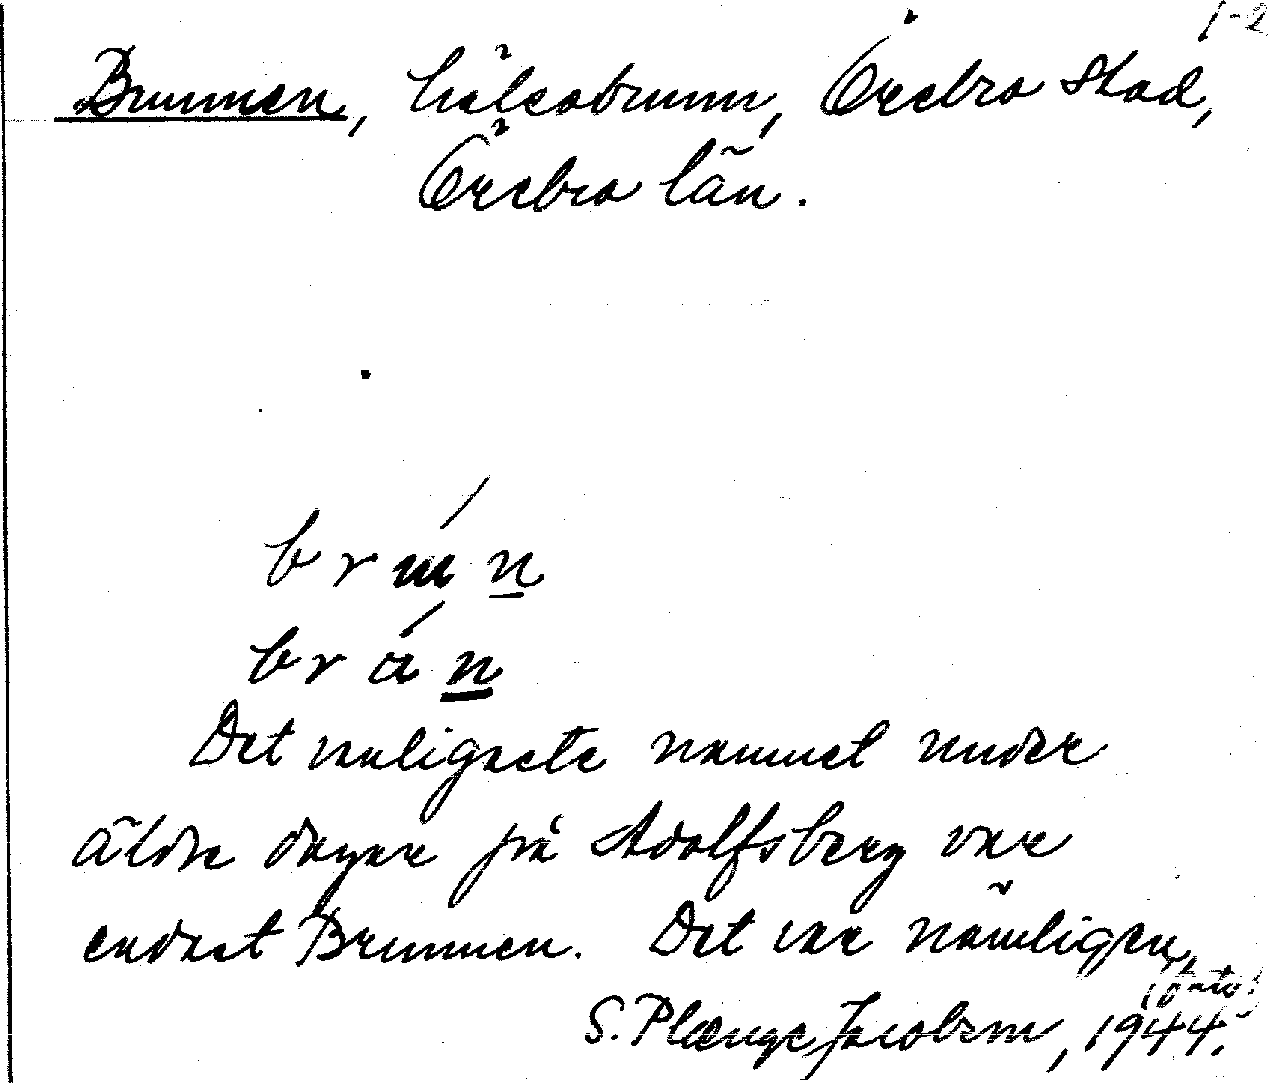 1-2
Brunnen, hälsobrunn, Örebro stad,
Örebro län.
brún n
brá n
Det vanligaste namnet under
äldre dagar på Adolfsberg var
endast Brunnen. Det var nämligen
S. Plænge Jacobson, 1944.